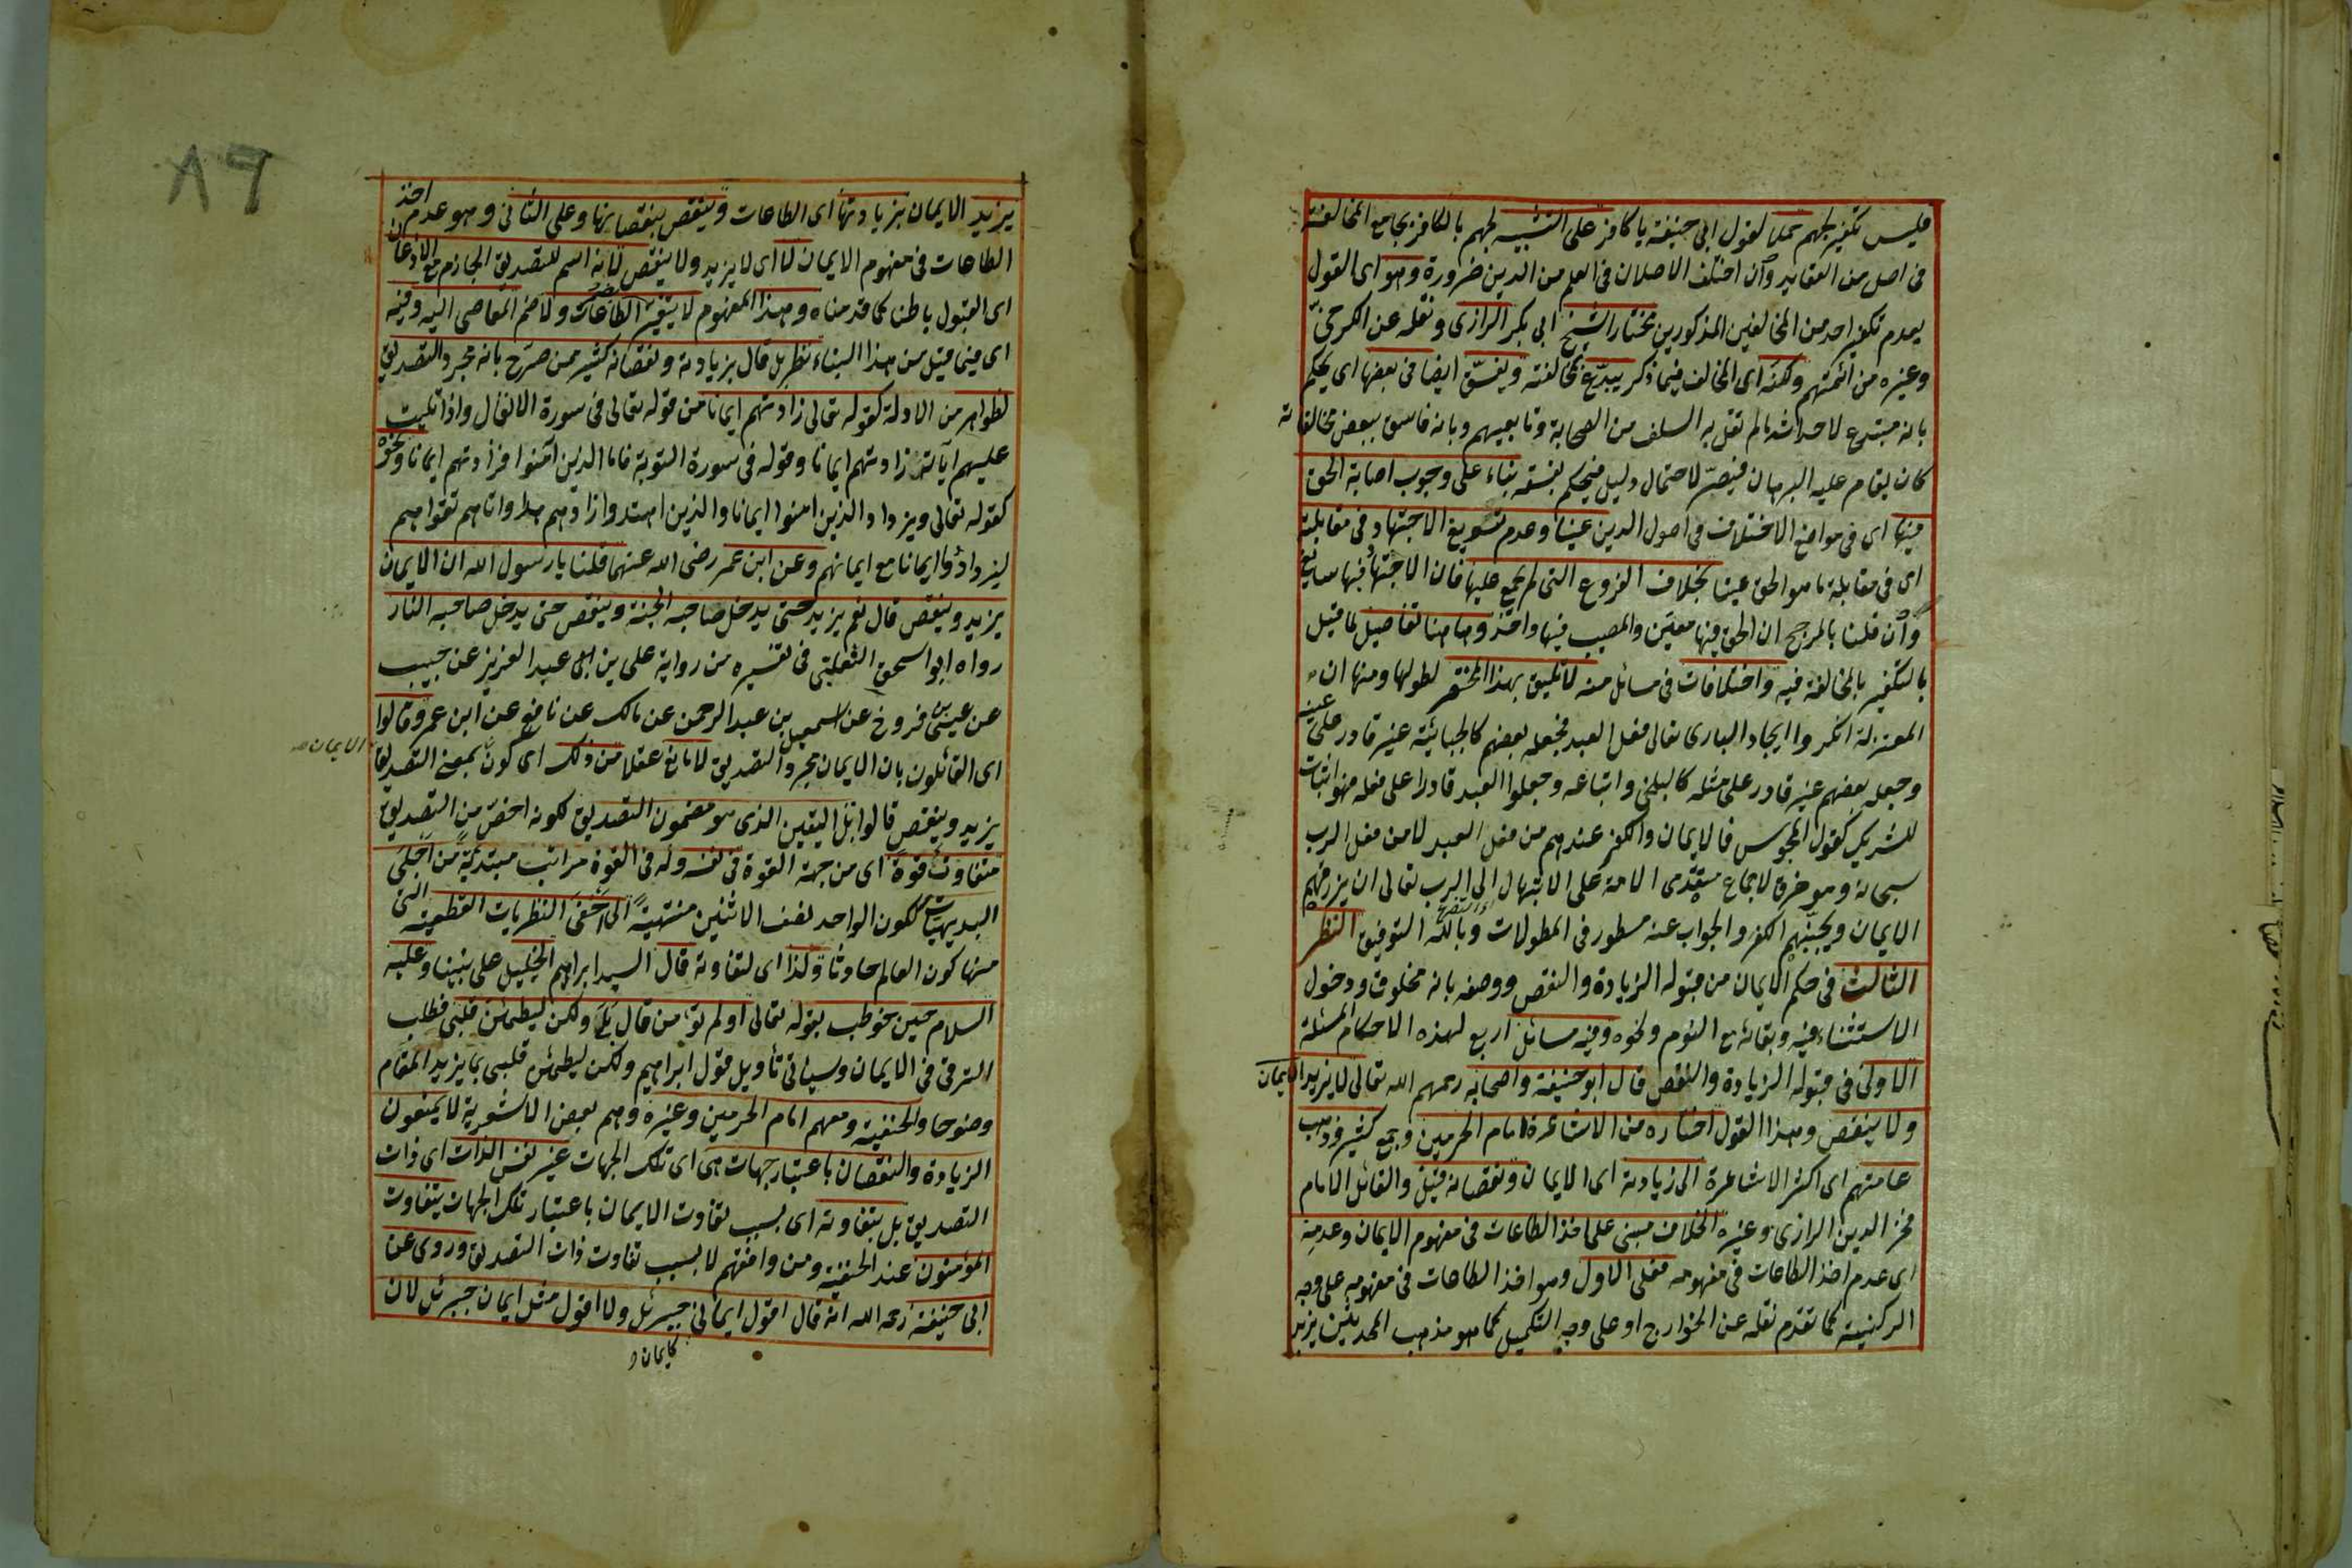 فليس تكفير لجهم عملا لقول ابي حنيفة يا كافر على التشبيه لجهم بالكافر بجامع المخالفة
في اصل من العقايد وان اختلف الاصلان في العلم من الدين ضرورة وهو اى القول
بعدم تكفير احد من المخالفين المذكورين مختار الشيخ ابى بكر الرازى ونقله عن الكرخى
وغيره من ائمتهم ولكنه اى المخالف فيما ذكر يبدع بمخالفته ويفسق ايضا فى بعضها اى يحكم
بانه مبتدع لاحداثه ما لم تقل به السلف من الصحابة وتابعيهم وبانه فاسق ببعض مخالفاته
كان يقام عليه البرهان فيصر لاحتمال دليل فيحكم بفسقه بناء على وجوب اصابة الحق
فيها اى فى مواضع الاختلاف فى اصول الدين عينا وعدم تسويغ الاجتهاد فى مقابلته
اى فى مقابلة ما هو الحق عينا بخلاف الفروع التى لم يجمع عليها فان الاجتهاد فيها سايغ
وان قلنا بالمرجح ان الحق فيها معين والمصيب فيها واحد وهاهنا تفاصيل لما قيل
بالتكفير بالمخالفة فيه واختلافات فى مسائل منه لا تليق بهذا المختصر لطولها ومنها ان
المعتزلة انكروا ايجاد البارى تعالى فعل العبد فجعله بعضهم كالجبائية غير قادر على عينه
وجعله بعضهم غير قادر على مثله كالبلخى واتباعه وجعلوا العبد قادرا على فعله فهو اثبات
للشريك كقول المجوس فالايمان والكفر عندهم من فعل العبد لا من فعل الرب
سبحانه وهو خرق لاجماع متقدمى الامة على الابتهال الى الرب تعالى ان يرزقهم
الايمان ويجنبهم الكفر والجواب عنه مسطور فى المطولات وبالله التوفيق النظر
الثالث فى حكم الايمان من قبوله الزيادة والنقص ووصفه بانه مخلوق ودخول
الاستثناء فيه وبقائه مع النوم ونحوه وفيه مسائل اربع لهذه الاحكام المسئلة
الاولى فى قبوله الزيادة والنقص قال ابو حنيفة واصحابه رحمهم الله تعالى لا يزيد الايمان
ولا ينقص وهذا القول اختاره من الاشاعرة امام الحرمين وجمع كثير وذهب
عامتهم اى اكثر الاشاعرة الى زيادته اى الايمان ونقصانه قيل والقائل الامام
فخر الدين الرازى وغيره الخلاف مبنى على اخذ الطاعات فى مفهوم الايمان وعدمه
اى عدم اخذ الطاعات فى مفهومه فعلى الاول وهو اخذ الطاعات فى مفهومه على وجه
الركنية كما تقدم نقله عن الخوارج او على وجه التكميل كما هو مذهب المحدثين يزيد
يزيد الايمان بزيادتها اى الطاعات وينقص بنقصانها وعلى الثانى وهو عدم اخذ
الطاعات فى مفهوم الايمان لا اى لا يزيد ولا ينقص لانه اسم للتصديق الجازم مع الاذعان
اى القبول باطنا كما قدمناه وهذا المفهوم لا يتغير الطاعات ولا ضم المعاصى اليه وفيه
اى فيما قيل من هذا البناء نظر بل قال بزيادته ونقصانه كثير ممن صرح بانه مجرد التصديق
لظواهر من الادلة كقوله تعالى زادتهم ايمانا من قوله تعالى فى سورة الانفال واذا تليت
عليهم اياته زادتهم ايمانا وقوله فى سورة التوبة فاما الذين آمنوا فزادتهم ايمانا ونحوه
كقوله تعالى ويزداد الذين امنوا ايمانا والذين اهتدوا زادهم هدا واتاهم تقواهم
ليزدادوا ايمانا مع ايمانهم وعن ابن عمر رضى الله عنهما قلنا يا رسول الله ان الايمان
يزيد وينقص قال نعم يزيد حتى يدخل صاحبه الجنة وينقص حتى يدخل صاحبه النار
رواه ابو اسحق الثعلبى فى تفسيره من رواية على بن عبد العزيز عن حبيب
عن عيسى بن فروخ عن اسمعيل بن عبد الرحمن عن مالك عن نافع عن ابن عمر وقالوا
اى القائلون بان الايمان مجرد التصديق لا مانع عقلا من ذلك اى كون بمعنى التصديق
الايمان
يزيد وينقص قالوا بل اليقين الذى هو مضمون التصديق لكونه اخص من التصديق
متفاوت قوة اى من جهة القوة فى نفسه وله فى القوة مراتب مبتدئة من اجلى
البديهيات ككون الواحد نصف الاثنين منتهية الى اخفى النظريات القطعية التى
منها كون العالم حادثا ولذا اى لتفاوته قال السيد ابراهيم الخليل على نبينا وعليه
السلام حين خوطب بقوله تعالى اولم تؤمن قال بلى ولكن ليطمئن قلبى فطلب
الترقى فى الايمان وسيأتى تأويل قول ابراهيم ولكن ليطمئن قلبى بما يزيد المقام
وضوحا والحنفية ومعهم امام الحرمين وغيره وهم بعض الاشعرية لا يمنعون
الزيادة والنقصان باعتبار جهات هى اى تلك الجهات غير نفس الذات اى ذات
التصديق بل بتفاوته اى بسبب تفاوت الايمان باعتبار تلك الجهات يتفاوت
المؤمنون عند الحنفية ومن وافقهم لا بسبب تفاوت ذات التصديق وروى عن
ابى حنيفة رحمه الله انه قال اقول ايمانى جبرئل ولا اقول مثل ايمان جبرئل لان
كايمان
٨٩